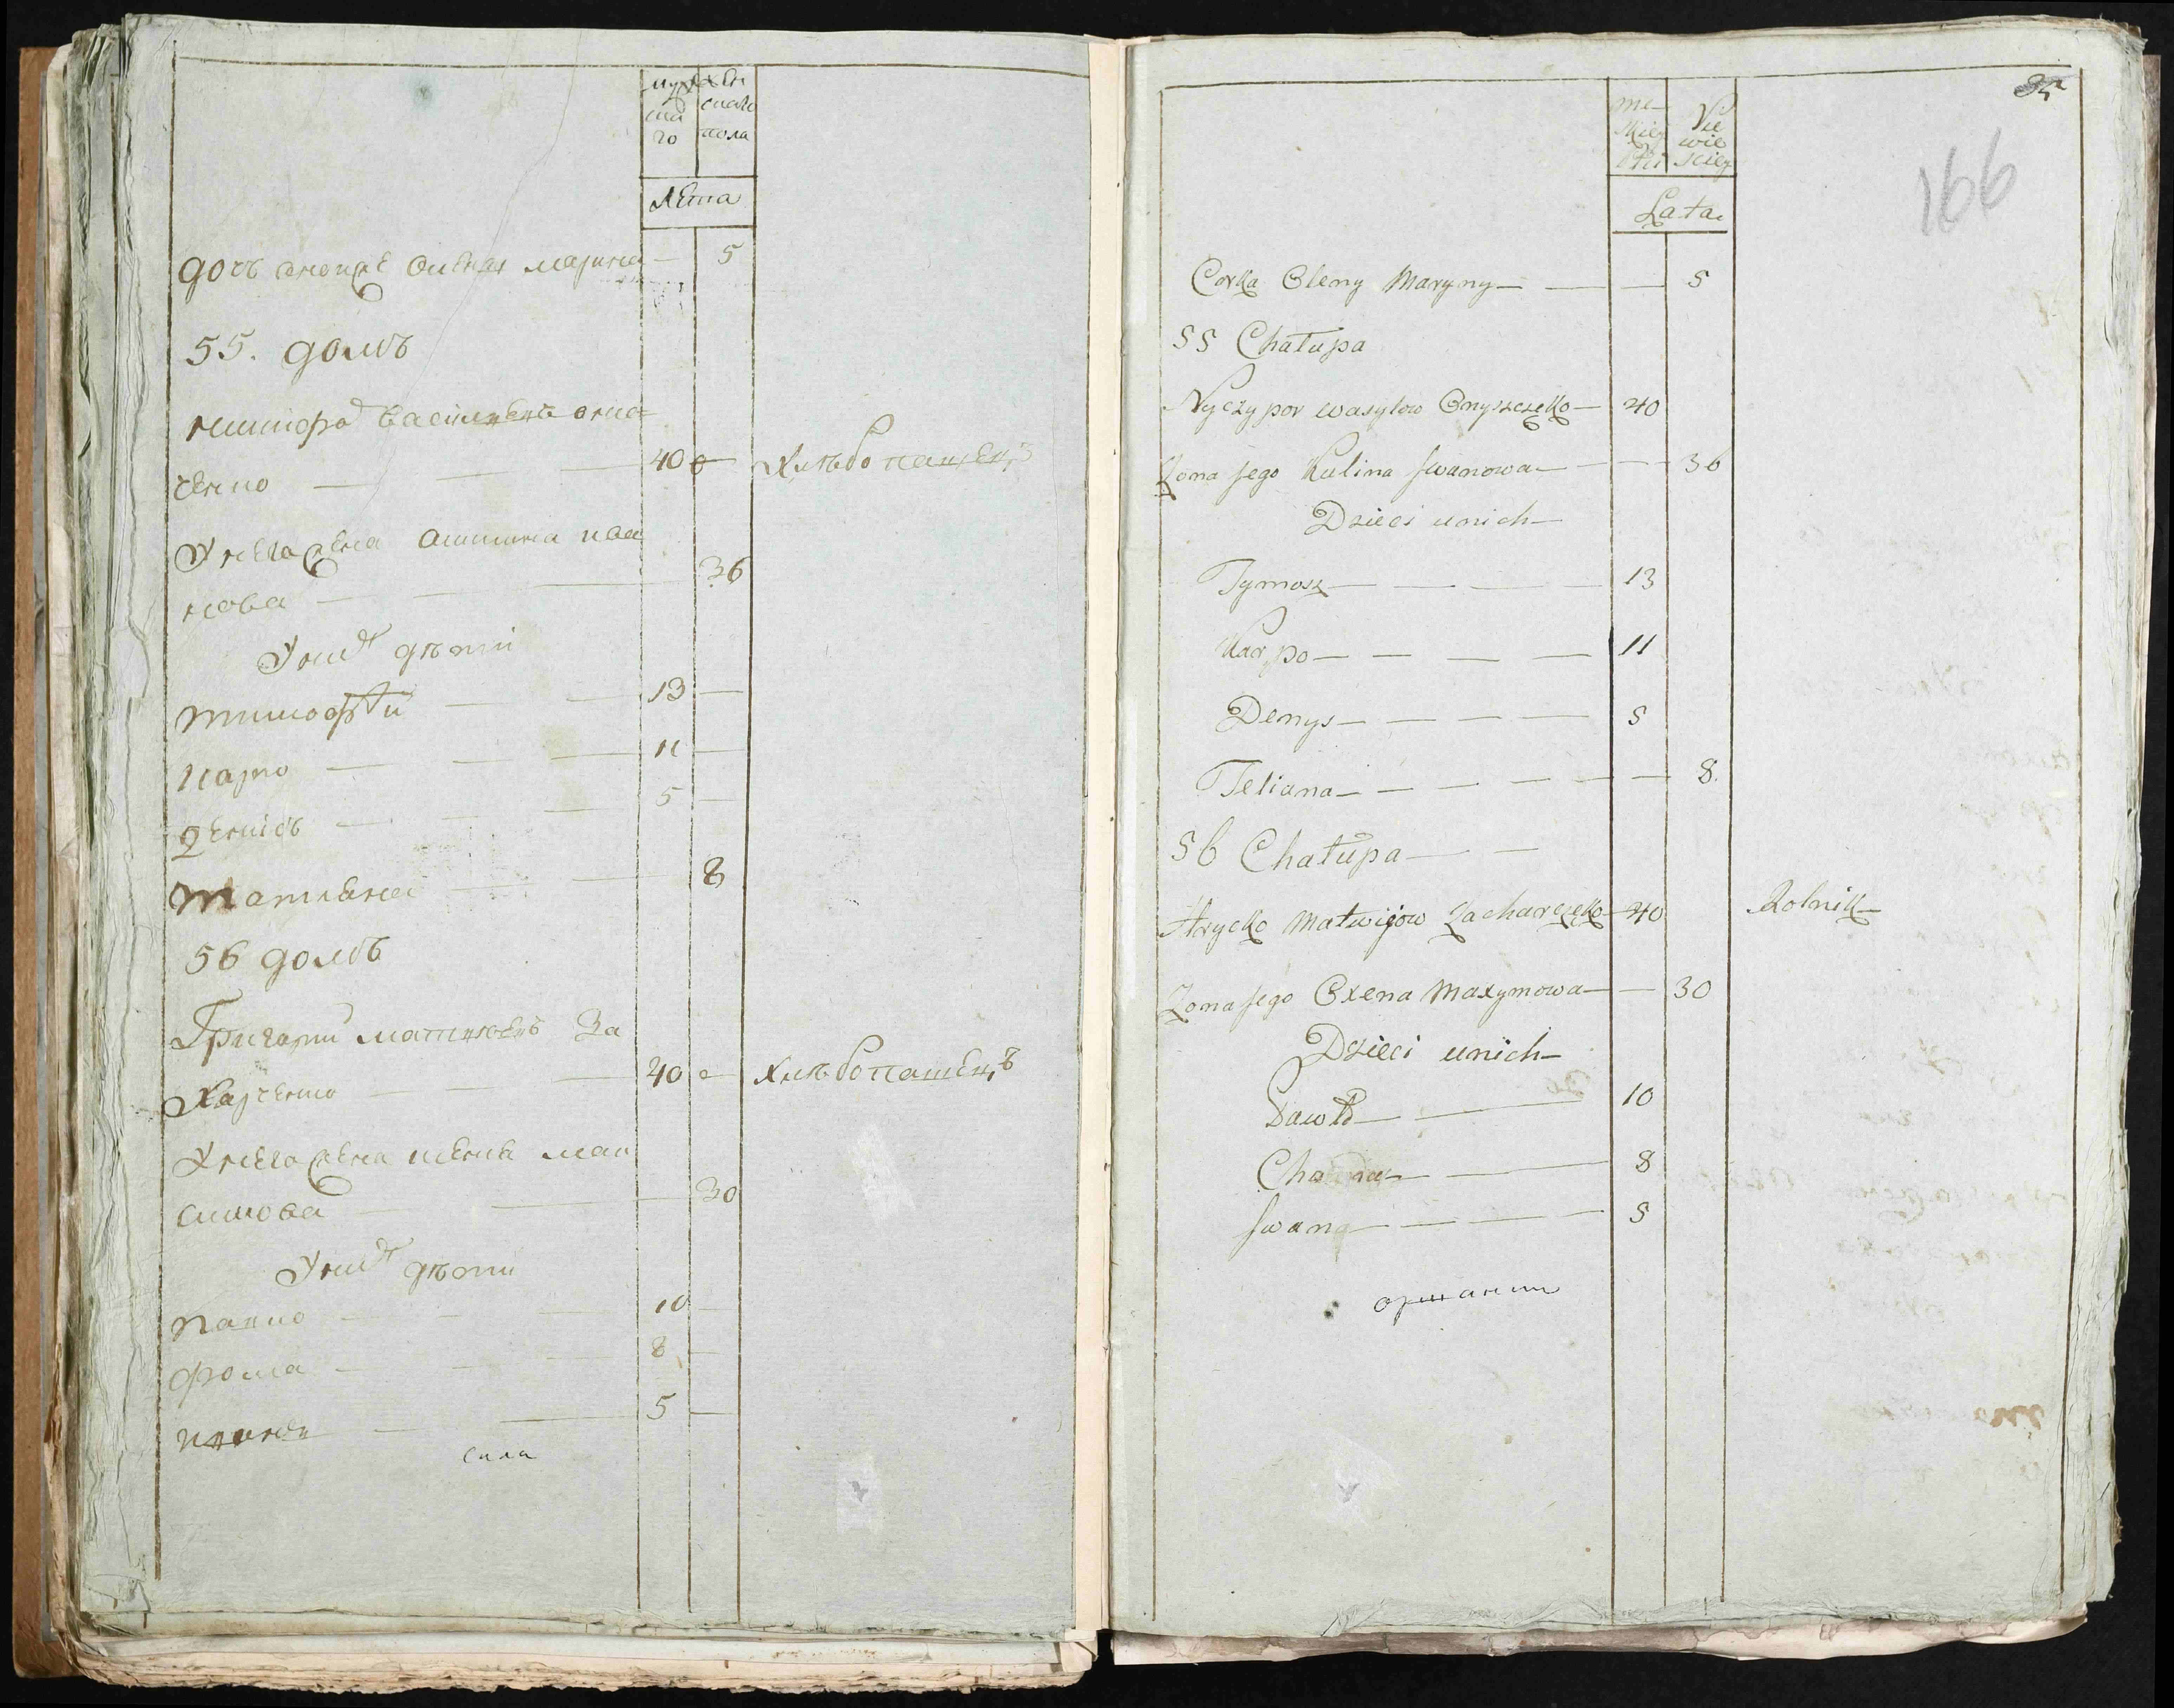 муж
ска
го
жен
скаго
пола
Лета
дочъ Марина — 5
55. домъ
Никифоръ Василиевъ Они
ченко — — — 40 хлѣбопашецъ
У него жена Акилина ива
нова — — — 36
У нихъ дѣти
Тимофѣй — — 13 —
Карпо — — — 11 —
Денисъ — — — 5 —
Татиана — — 8
56 домъ
Григорий Матвиевъ За
харченко — — 40 хлѣбопашецъ
У него жена Мак
симова — — 30
У нихъ дѣти
Павло — — — 10 —
Фома — — — 8 —
Иванъ — — 5 —
сила
35
166
me-
skiej
Płci
Nie
wie
sciey
Lata
Corka Oleny Maryny — — — 5
55 Chałupa
Nyczypor wasylow Onyszczęko — 40
Zona Jego Kulina Jwanowa — — 36
Dzieci unich —
Tymosz — — — — 13
Karpo — — — — 11
Denys — — — — 5
Teliana — — — — — 8.
56 Chałupa — —
Hrycko Matwijow Zacharczęko — 40 Rolnik —
Zona Jego Oxena Maxymowa — — 30
Dzieci unich —
Pawło — — 10
Choma — — 8
Jwana — — — 5